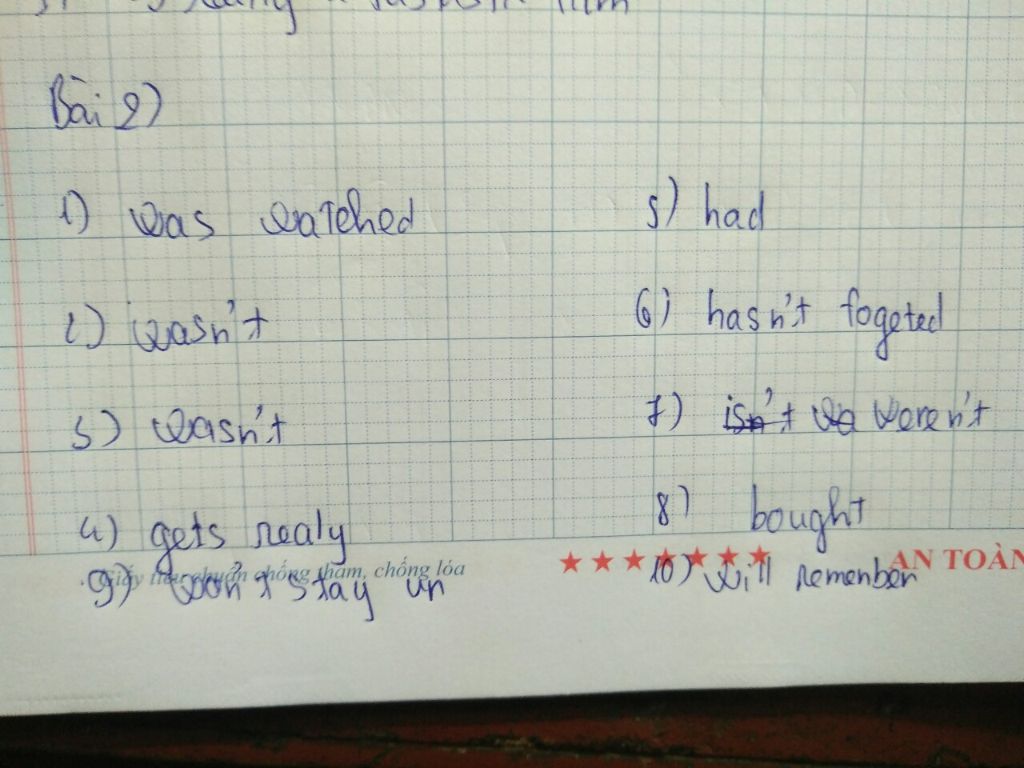 film
Bài 2)
1) was watched
2) wasn't
3) wasn't
4) gets realy
5) had
6) hasn't fogeted
7) isn't we weren't
8) bought
Giấy tiêu chuẩn chống thấm, chống lóa
AN TOÀN
9) won't stay un
10) will remenber